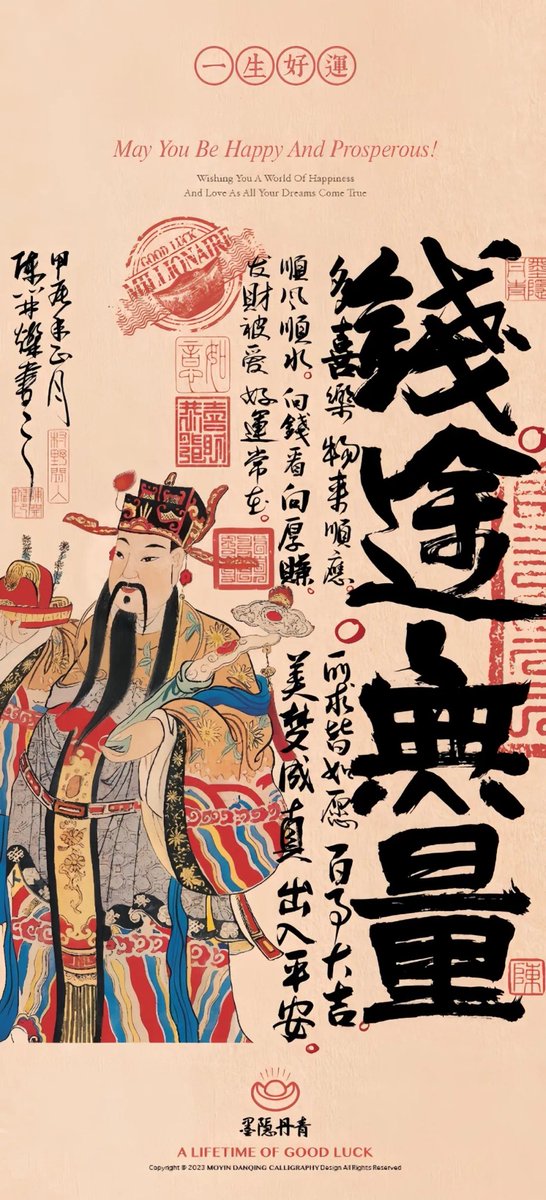 一生好運
May You Be Happy And Prosperous!
Wishing You A World Of Happiness
And Love As All Your Dreams Come True
錢途無量
多喜樂 物来順應。
所求皆如愿 百事大吉。
順风順水。向錢看向厚赚。
美梦成真 出入平安。
发財被爱 好運常在。
GOOD LUCK
MILLIONAIRE
如意
恭喜發財
甲辰年正月
墨隱丹青
陳
墨隐丹青
A LIFETIME OF GOOD LUCK
Copyright © 2023 MOYIN DANQING CALLIGRAPHY Design All Rights Reserved